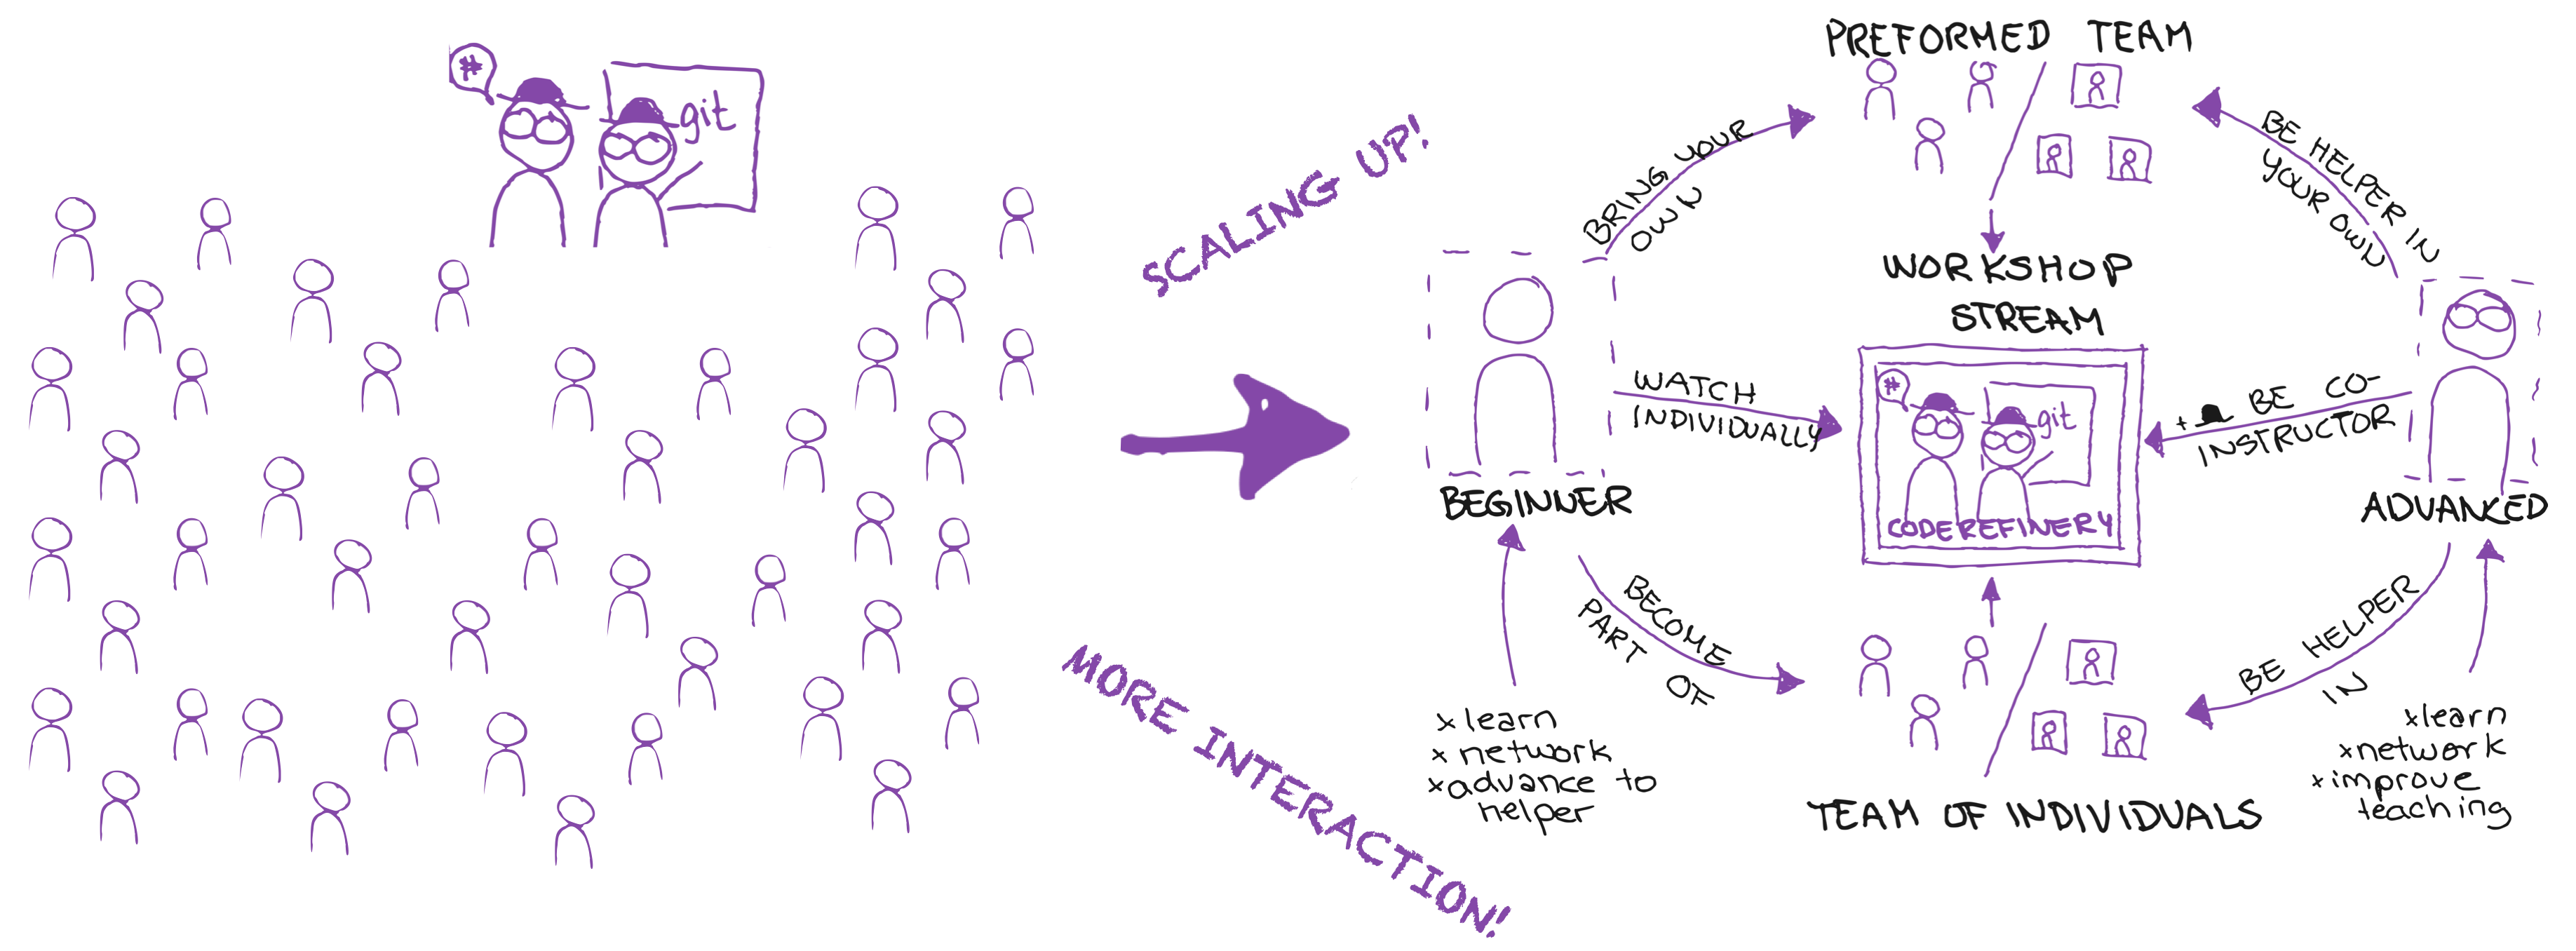 #
git
SCALING UP!
MORE INTERACTION!
PREFORMED TEAM
BRING YOUR
OWN
BE HELPER IN
YOUR OWN
WORKSHOP
STREAM
WATCH
INDIVIDUALLY
#
git
CODEREFINERY
+ BE CO-
INSTRUCTOR
BEGINNER
ADVANCED
BECOME
PART OF
BE HELPER
IN
x learn
x network
x advance to
helper
TEAM OF INDIVIDUALS
x learn
x network
x improve
teaching